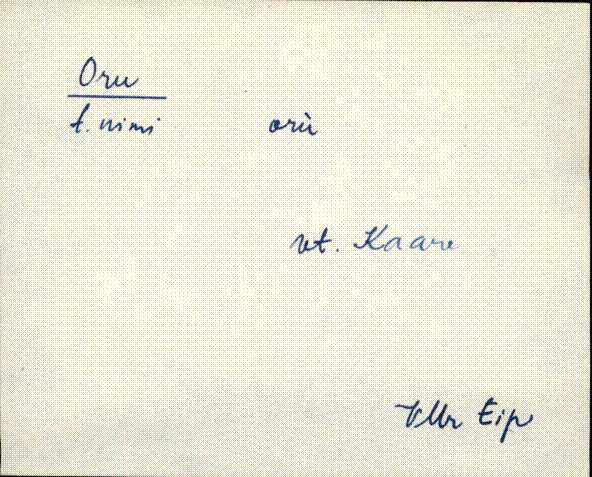 Oru
t. nimi orù
vt. Kaare
VMr Eip